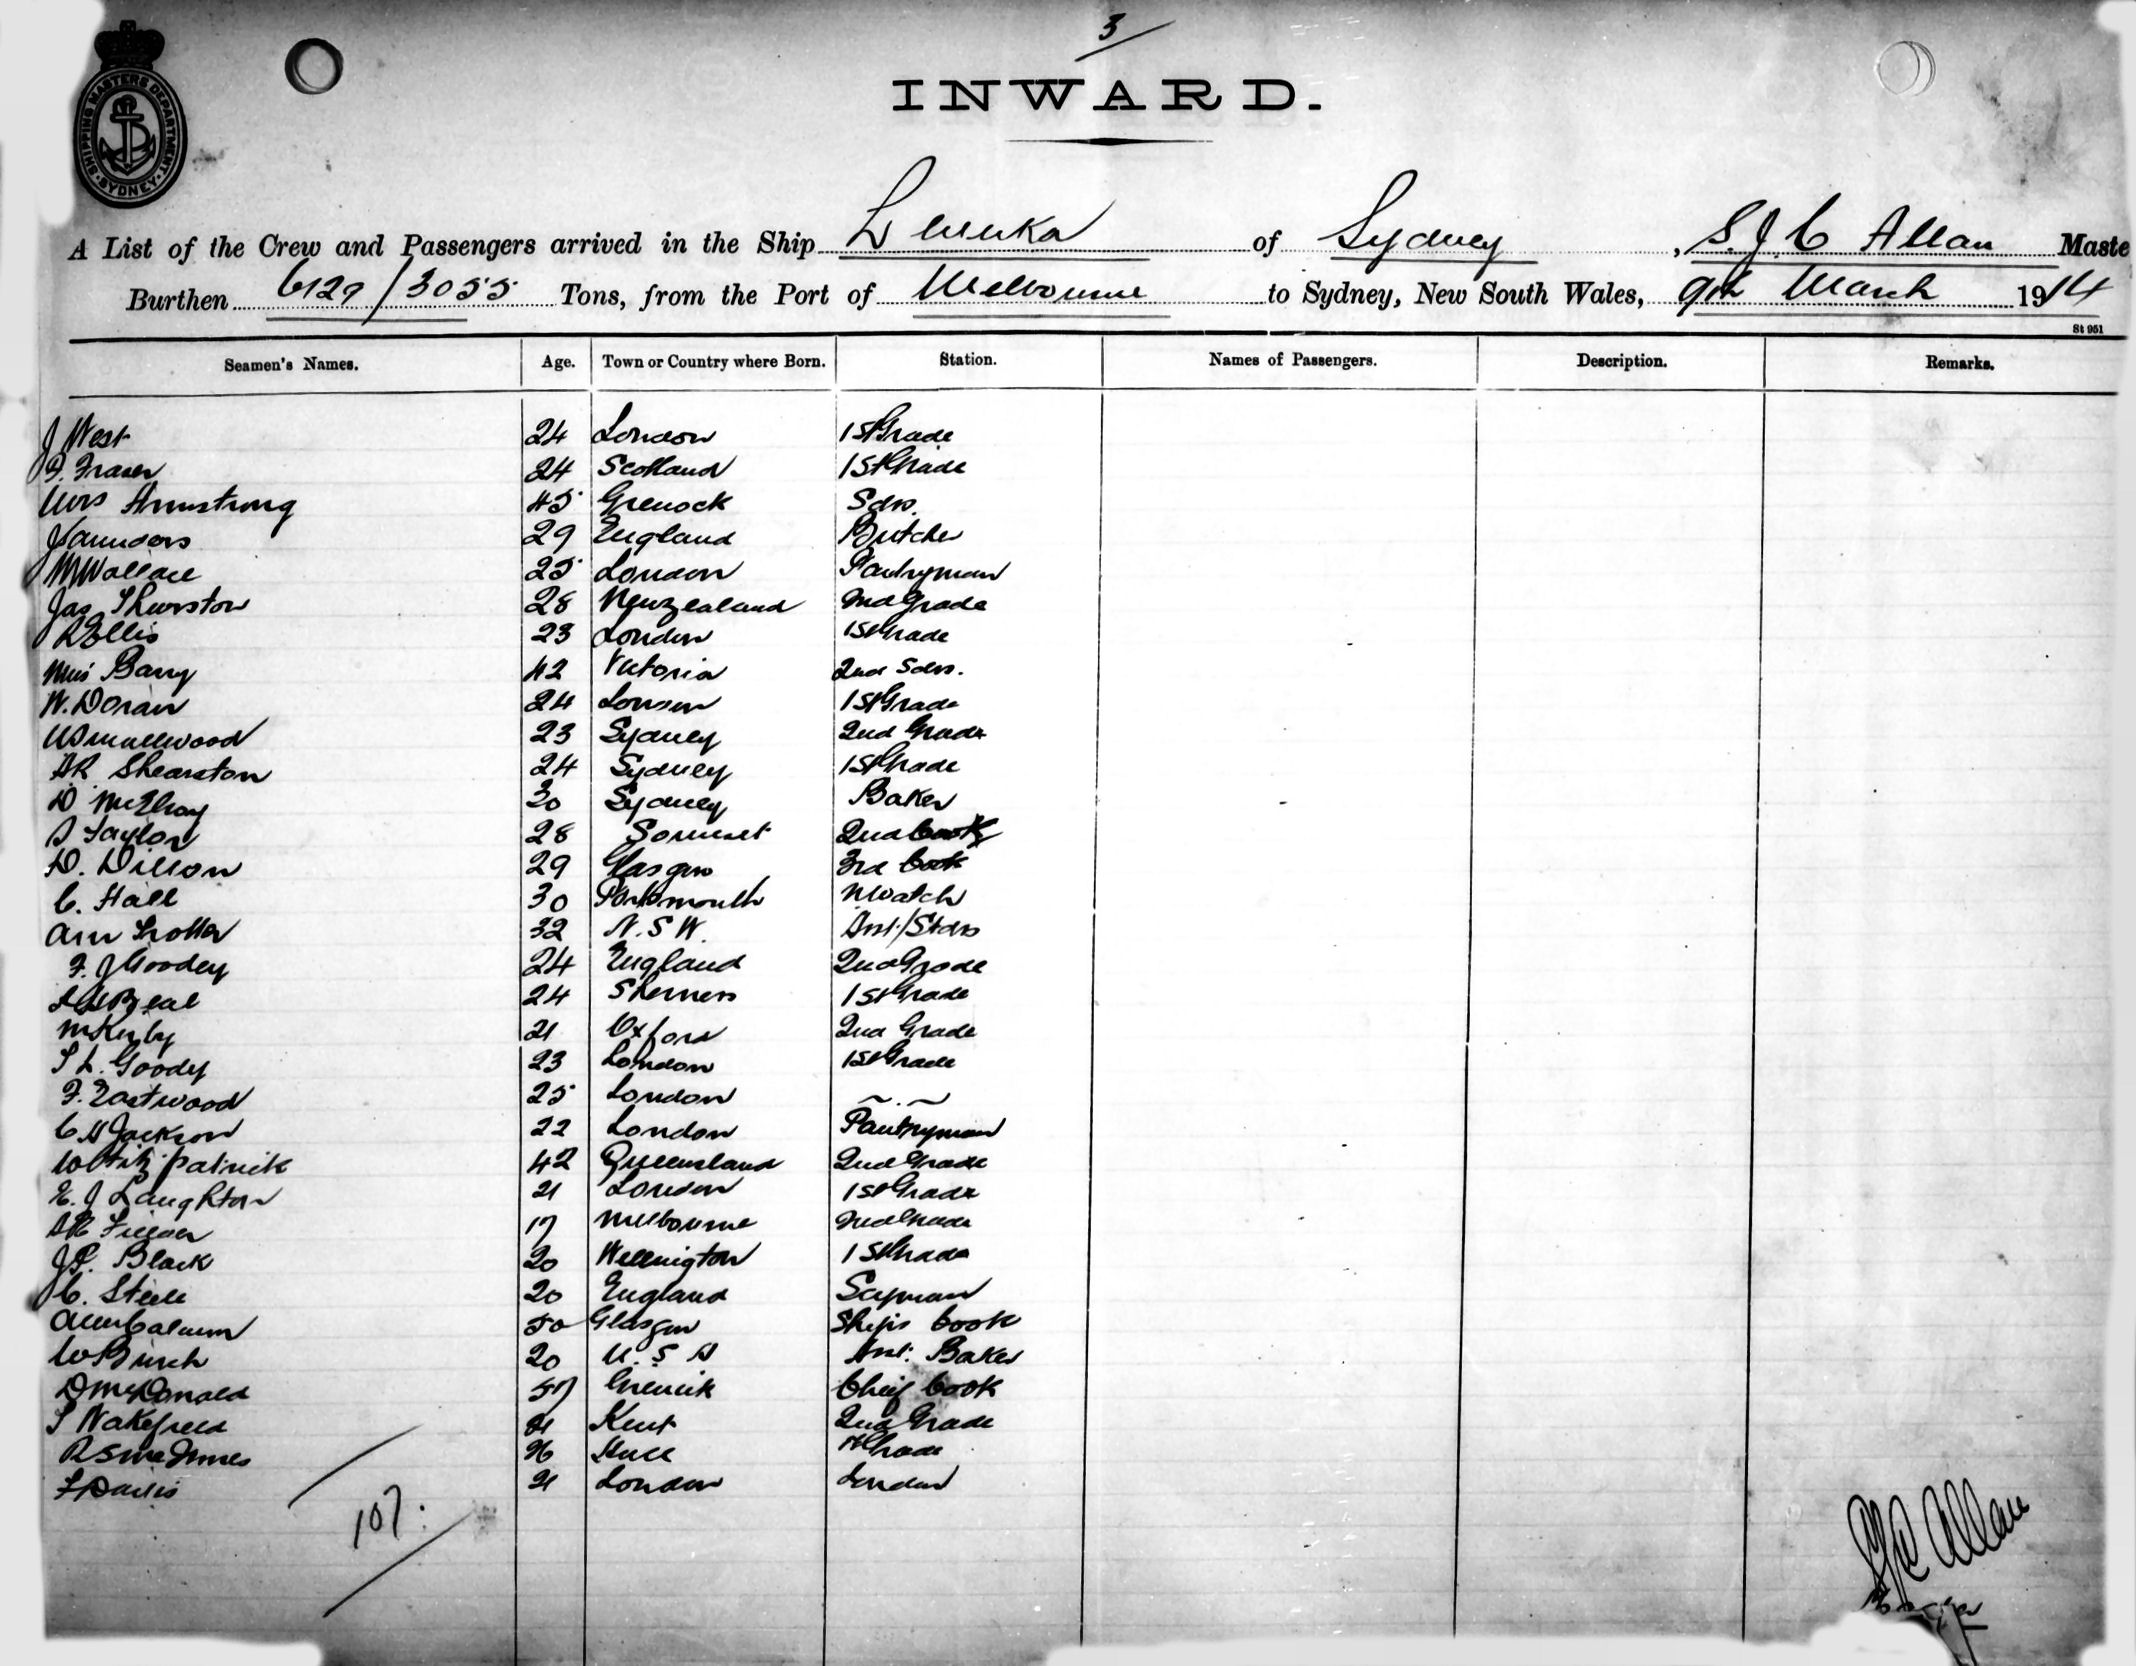 3
INWARD.
SHIPPING MASTERS DEPARTMENT
SYDNEY
A List of the Crew and Passengers arrived in the Ship Levuka of Sydney, S. J. C Allan Maste
Burthen 6129/3055 Tons, from the Port of Melbourne to Sydney, New South Wales, 9th March 1914
St 951
Seamen's Names. Age. Town or Country where Born. Station. Names of Passengers. Description. Remarks.
J West 24 London 1st Grade
Fraser 24 Scotland 1st Grade
Mrs Armstrong 45 Greenock Sdss.
J Saunders 29 England Butcher
M Wallace 25 London Pantryman
Jas Thurston 28 New Zealand 2nd Grade
R Ellis 23 London 1st Grade
Miss Barry 42 Victoria 2nd Sdss.
W. Doran 24 London 1st Grade
Smallwood 23 Sydney 2nd Grade
AR Shearston 24 Sydney 1st Grade
D McElroy 30 Sydney Baker
S Taylor 28 Somerset 2nd Cook
D. Dillon 29 Glasgow 3rd Cook
C. Hall 30 Portsmouth N Watch
Ann Trotter 32 N.S.W. Asst/Stdss
F. J Goodey 24 England 2nd Grade
Beal 24 Sherness 1st Grade
M Kirby 21 Oxford 2nd Grade
S L. Goody 23 London 1st Grade
F. Eastwood 25 London
C H Jackson 22 London Pantryman
W Fitzpatrick 42 Queensland 2nd Grade
E. J Laughton 21 London 1st Grade
17 Melbourne 2nd Grade
J P. Black 20 Wellington 1st Grade
C. Steele 20 England Scyman
A McCalum 50 Glasgow Ships Cook
W Burch 20 U.S A Asst. Baker
D McDonald 57 Chief Cook
S Wakefield 21 Kent 2nd Grade
R S McInnes 26 Hull Grade
F Davis 21 London London
107.
SJC Allan